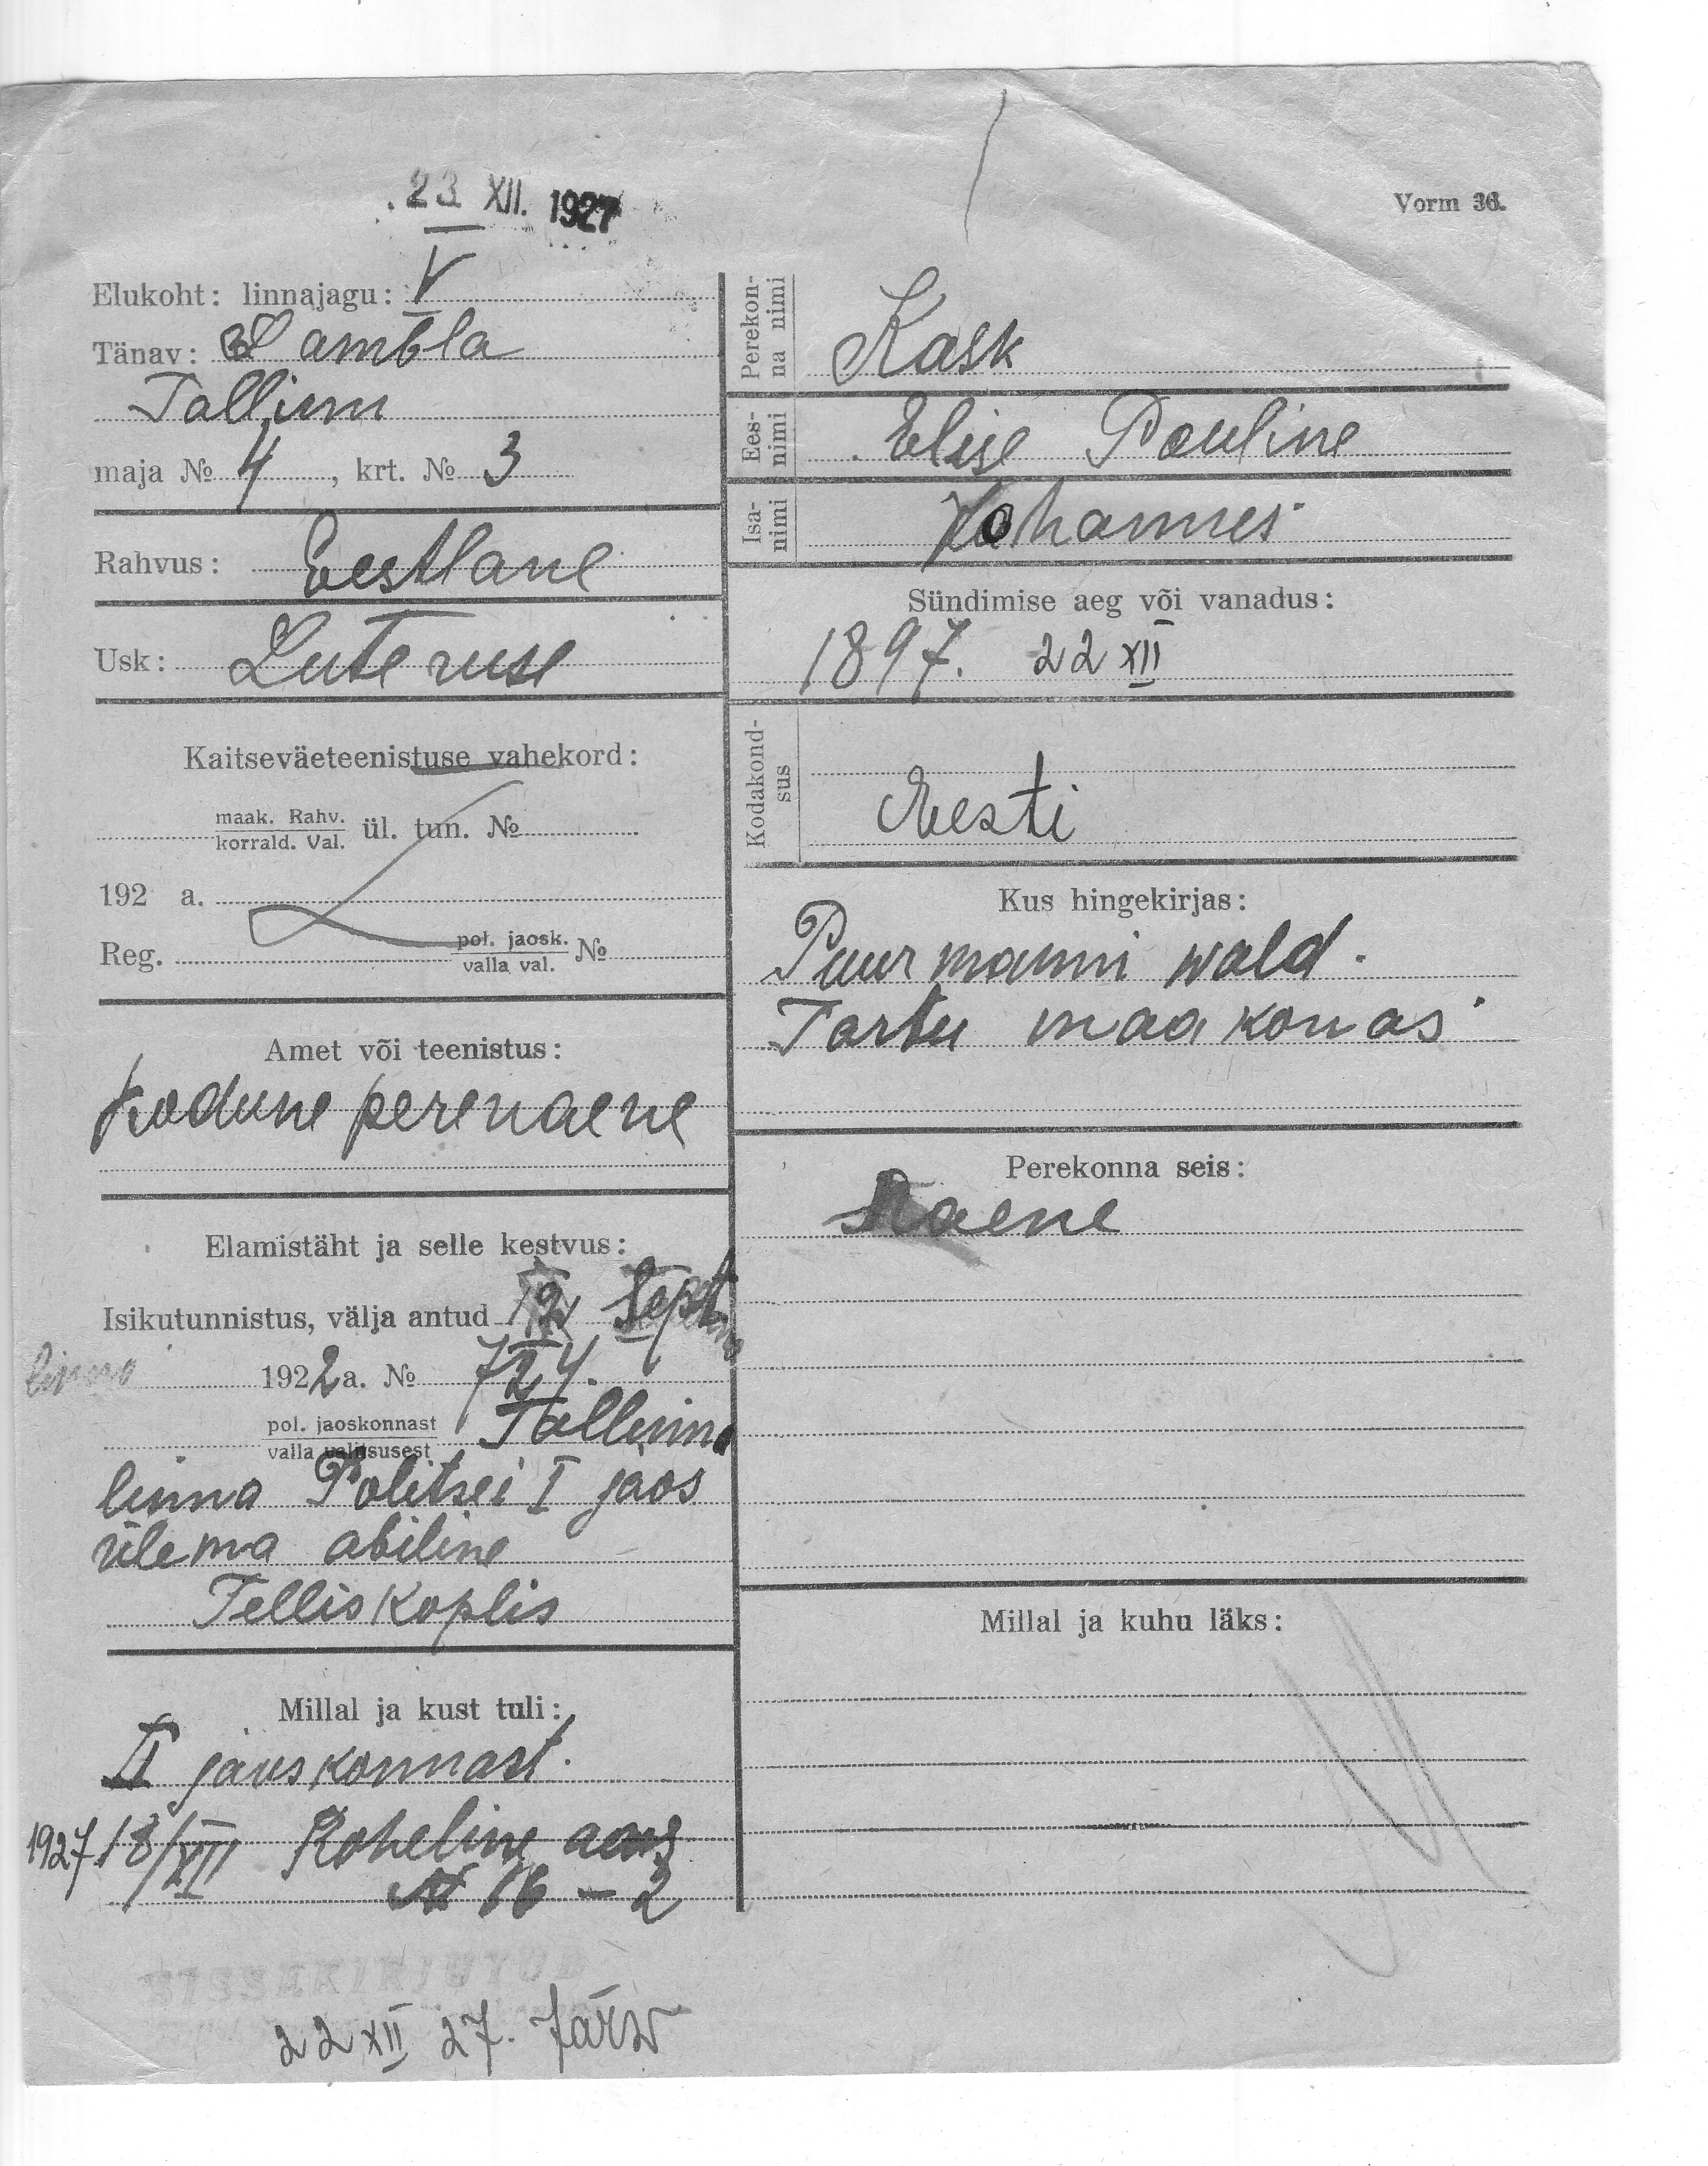 23 XII. 1927
Vorm 36.
Elukoht: linnajagu: V
Tänav: Lambla
Tallinn
maja № 4, krt. № 3
Rahvus: Eestlane
Usk: Luteruse
Kaitseväeteenistuse vahekord:
maak. Rahv.
korrald. Val. ül. tun. №
192 a.
Reg. pol. jaosk.
valla val. №
Amet või teenistus:
kodune perenaene
Elamistäht ja selle kestvus:
Isikutunnistus, välja antud 12 Sept
linna 1922 a. № 724.
pol. jaoskonnast
valla valitsusest Tallinna
linna Politsei I jaos
ülema abiline
Telliskoplis
Millal ja kust tuli:
II jaoskonnast.
1927 18/XII Roheline aas
№ 16 – 2
22 XII 27. Järw
Perekonna nimi Kask
Eesnimi Elise Pauline
Isanimi Johannes
Sündimise aeg või vanadus:
1897. 22 XII
Kodakondsus
Eesti
Kus hingekirjas:
Puurmanni wald.
Tartu maakonas
Perekonna seis:
Naene
Millal ja kuhu läks: